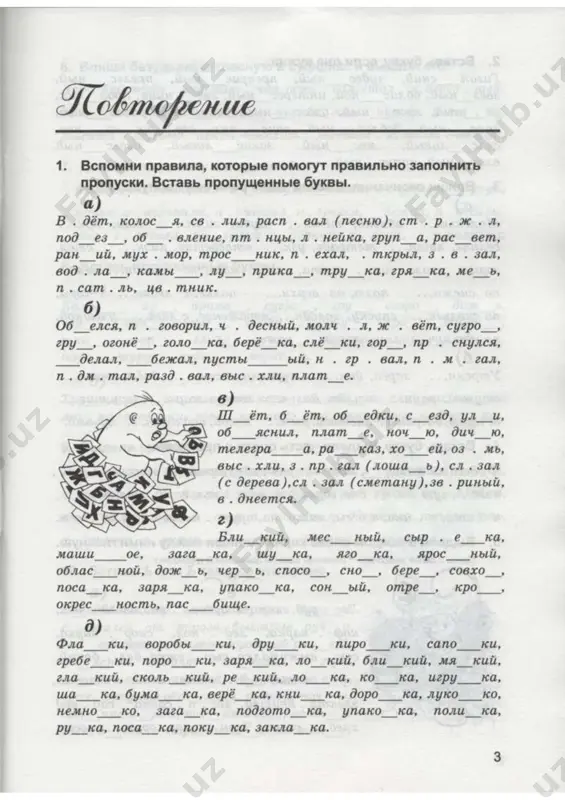 Повторение
1. Вспомни правила, которые помогут правильно заполнить
пропуски. Вставь пропущенные буквы.
а)
В . дёт, колос__я, св . лил, расп . вал (песню), ст . р . ж . л,
под__ез__, об__ . вление, пт . нцы, л . нейка, груп__а, рас__вет,
ран__ий, мух . мор, трос___ник, п . ехал, . ткрыл, з . в . зал,
вод . ла__, камы___, лу__, прика__, тру__ка, гря__ка, ме__ь,
п . сат . ль, цв . тник.
б)
Об__елся, п . говорил, ч . десный, молч . л, ж . вёт, сугро__,
гру__, огонё__, голо__ка, берё__ка, слё__ки, гор__, пр . снулся,
___делал, ___бежал, пусты_____ый, н . гр . вал, п . м . гал,
п . дм . тал, разд . вал, выс . хли, плат__е.
в)
Ш__ёт, б__ёт, об__едки, с__езд, ул__и,
об___яснил, плат__е, ноч__ю, дич__ю,
телегра____а, ра___каз, хо___ей, оз . мь,
выс . хли, з . пр . гал (лоша__ь), сл . зал
(с дерева),сл . зал (сметану),зв . риный,
в . днеется.
г)
Бли__кий, мес___ный, сыр . е__ка,
маши____ое, зага__ка, шу__ка, яго__ка, ярос___ный,
облас___ной, дож__ь, чер__ь, спосо__, сно__, бере__, совхо__,
поса__ка, заря__ка, упако__ка, сон__ый, отре__, кро___,
окрес___ность, пас___бище.
д)
Фла___ки, воробы__ки, дру___ки, пиро___ки, сапо___ки,
гребе___ки, поро___ки, заря__ка, ло__кий, бли__кий, мя__кий,
гла__кий, сколь__кий, ре__кий, ло___ка, ко___ка, игру___ка,
ша___ка, бума___ка, верё__ка, кни___ка, доро___ка, луко___ко,
немно___ко, зага__ка, подгото__ка, упако__ка, поли__ка,
ру__ка, поса__ка, поку__ка, закла__ка.
3
FaylHub.uz